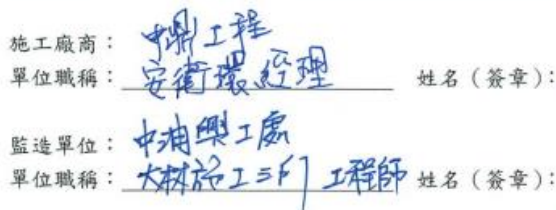 施工廠商：中鼎工程
單位職稱：安衛環經理 姓名（簽章）：
監造單位：中油興工處
單位職稱：大林施工三門工程師 姓名（簽章）：